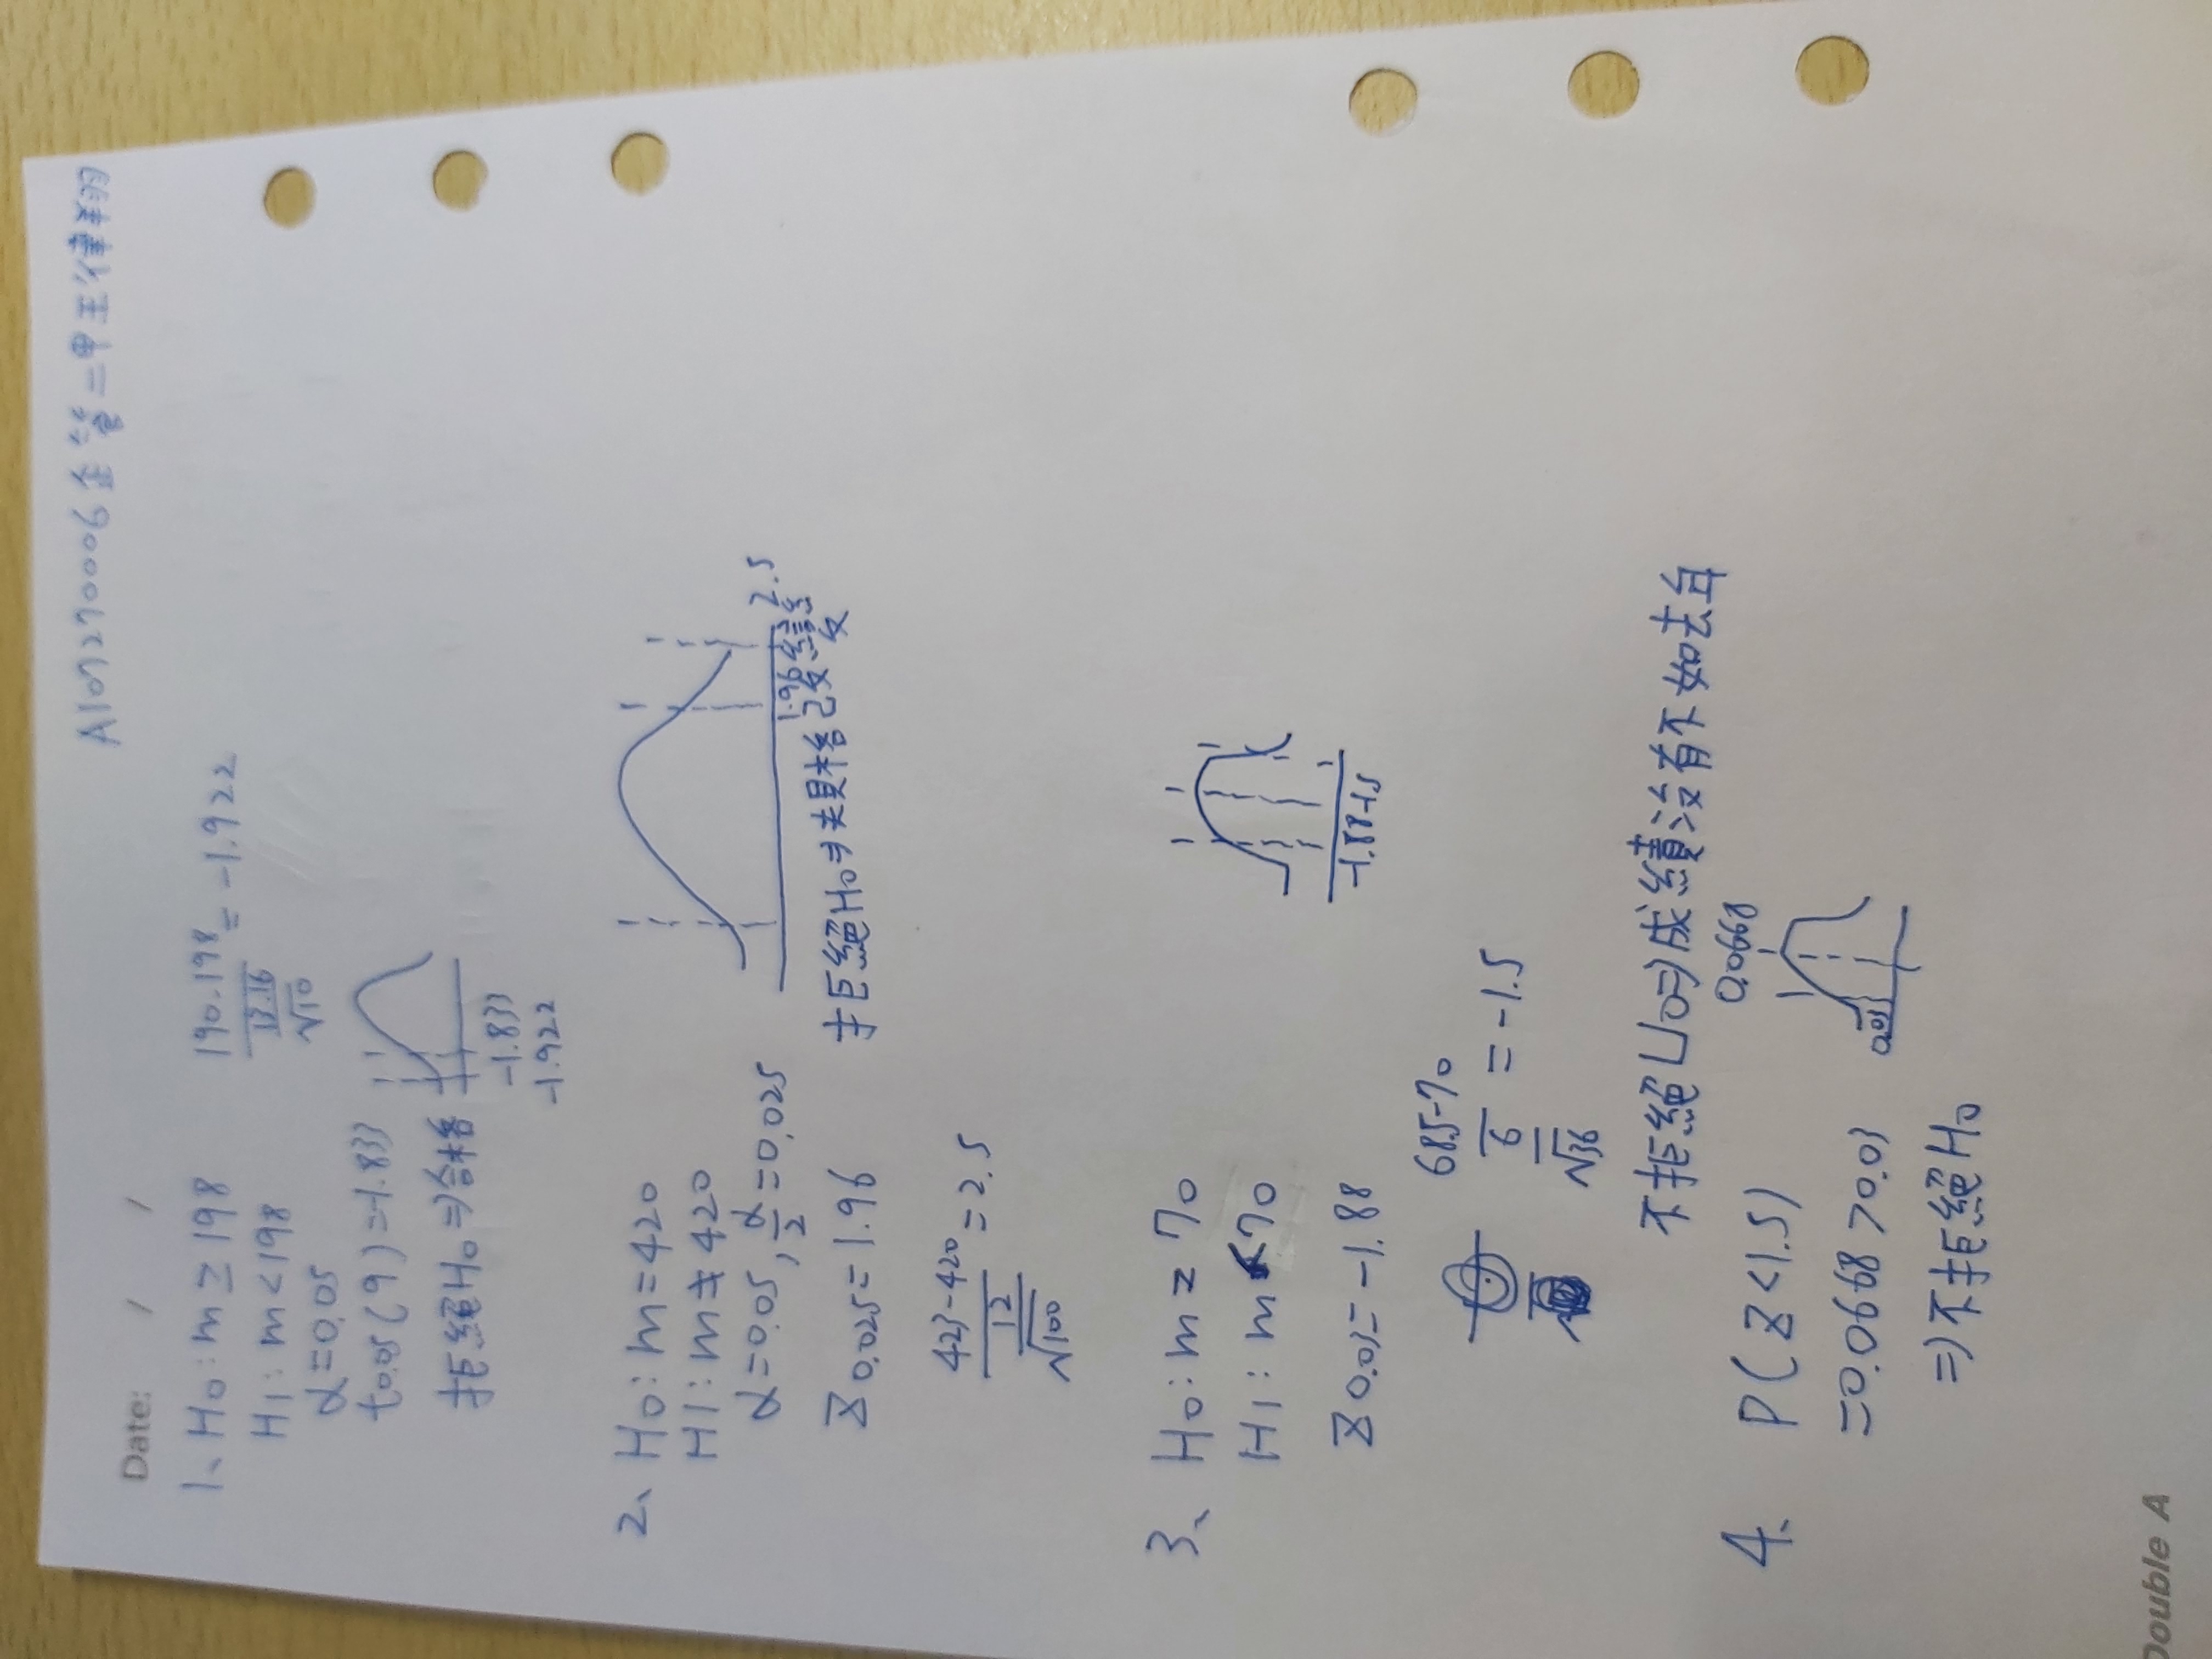 A107270006 企管二甲王律翔
Date: / /
1、H0:m≥198
H1:m<198
α=0.05
t0.05(9)=-1.833
拒絕H0⇒合格
190-198
13.16
√10
=-1.922
-1.833
-1.922
2、H0:m=420
H1:m≠420
α=0.05,α/2=0.025
Z0.025=1.96
423-420
12
√100
=2.5
1.96
2.5
拒絕H0⇒規格已改變
3、H0:m≥70
H1:m<70
Z0.03=-1.88
68.5-70
6
√36
=-1.5
-1.88-1.5
不拒絕H0⇒成績沒有不如去年
4、P(Z<1.5)
=0.0668>0.03
⇒不拒絕H0
0.0668
0.03
Double A